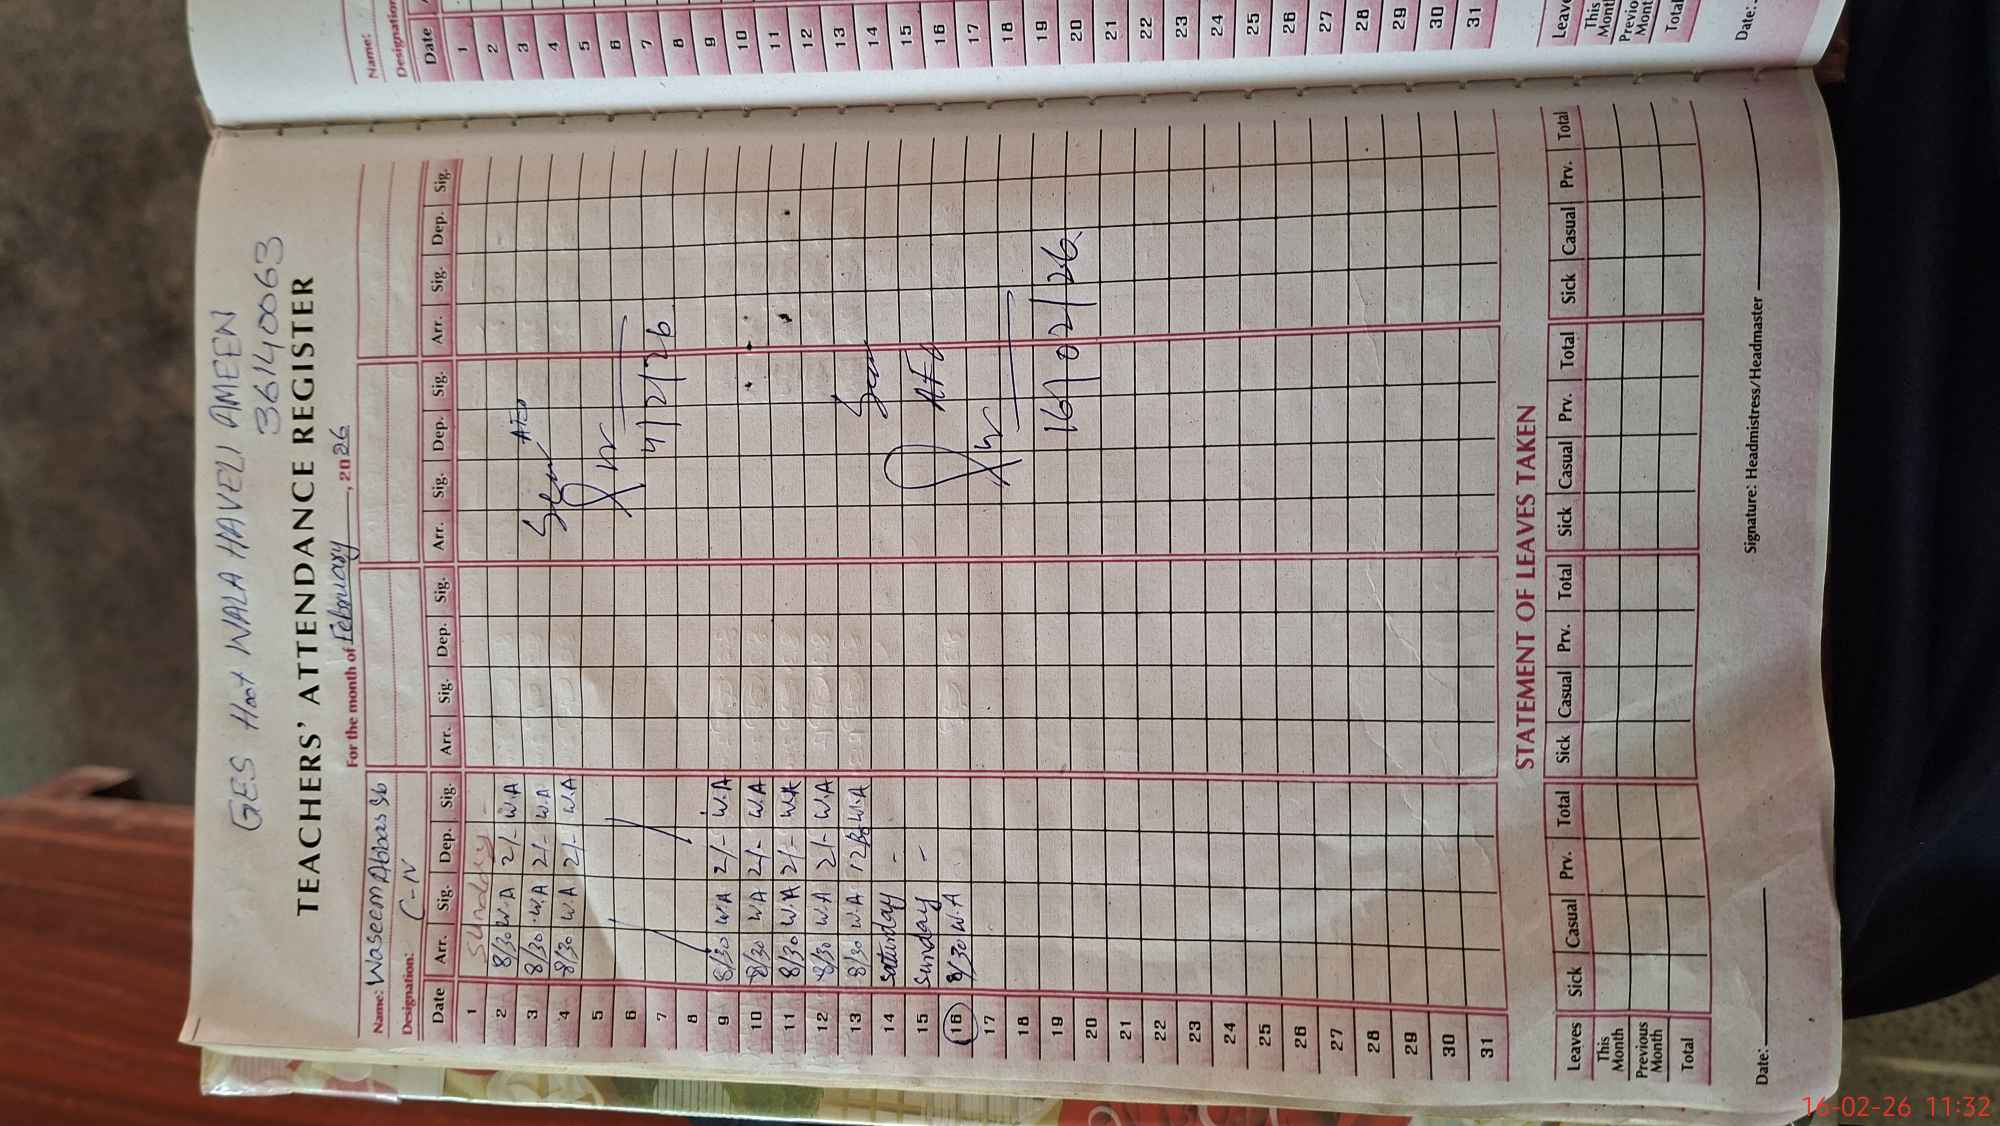 GES Hoot WALA HAVELI AMEEN
36140063
TEACHERS' ATTENDANCE REGISTER
For the month of February, 2026
Name: Waseem Abbas Sb
Designation: C-IV
Date Arr. Sig. Dep. Sig. Arr. Sig. Dep. Sig. Arr. Sig. Dep. Sig. Arr. Sig. Dep. Sig.
1 Sunday -
2 8/30 W.A 2/- W.A
3 8/30 W.A 2/- W.A
4 8/30 W.A 2/- W.A
5
6
7
8
9 8/30 W.A 2/- W.A
10 8/30 W.A 2/- W.A
11 8/30 W.A 2/- W.A
12 8/30 W.A 2/- W.A
13 8/30 W.A W.A
14 Saturday -
15 Sunday -
16 8/30 W.A
17
18
19
20
21
22
23
24
25
26
27
28
29
30
31
Seen
4/2/26
Seen
16/02/26
STATEMENT OF LEAVES TAKEN
Leaves Sick Casual Prv. Total Sick Casual Prv. Total Sick Casual Prv. Total Sick Casual Prv. Total
This Month
Previous Month
Total
Date: Signature: Headmistress/Headmaster
Name:
Designation
Date
1
2
3
4
5
6
7
8
9
10
11
12
13
14
15
16
17
18
19
20
21
22
23
24
25
26
27
28
29
30
31
Leave
This
Mont
Previo
Mont
Total
Date:
16-02-26 11:32